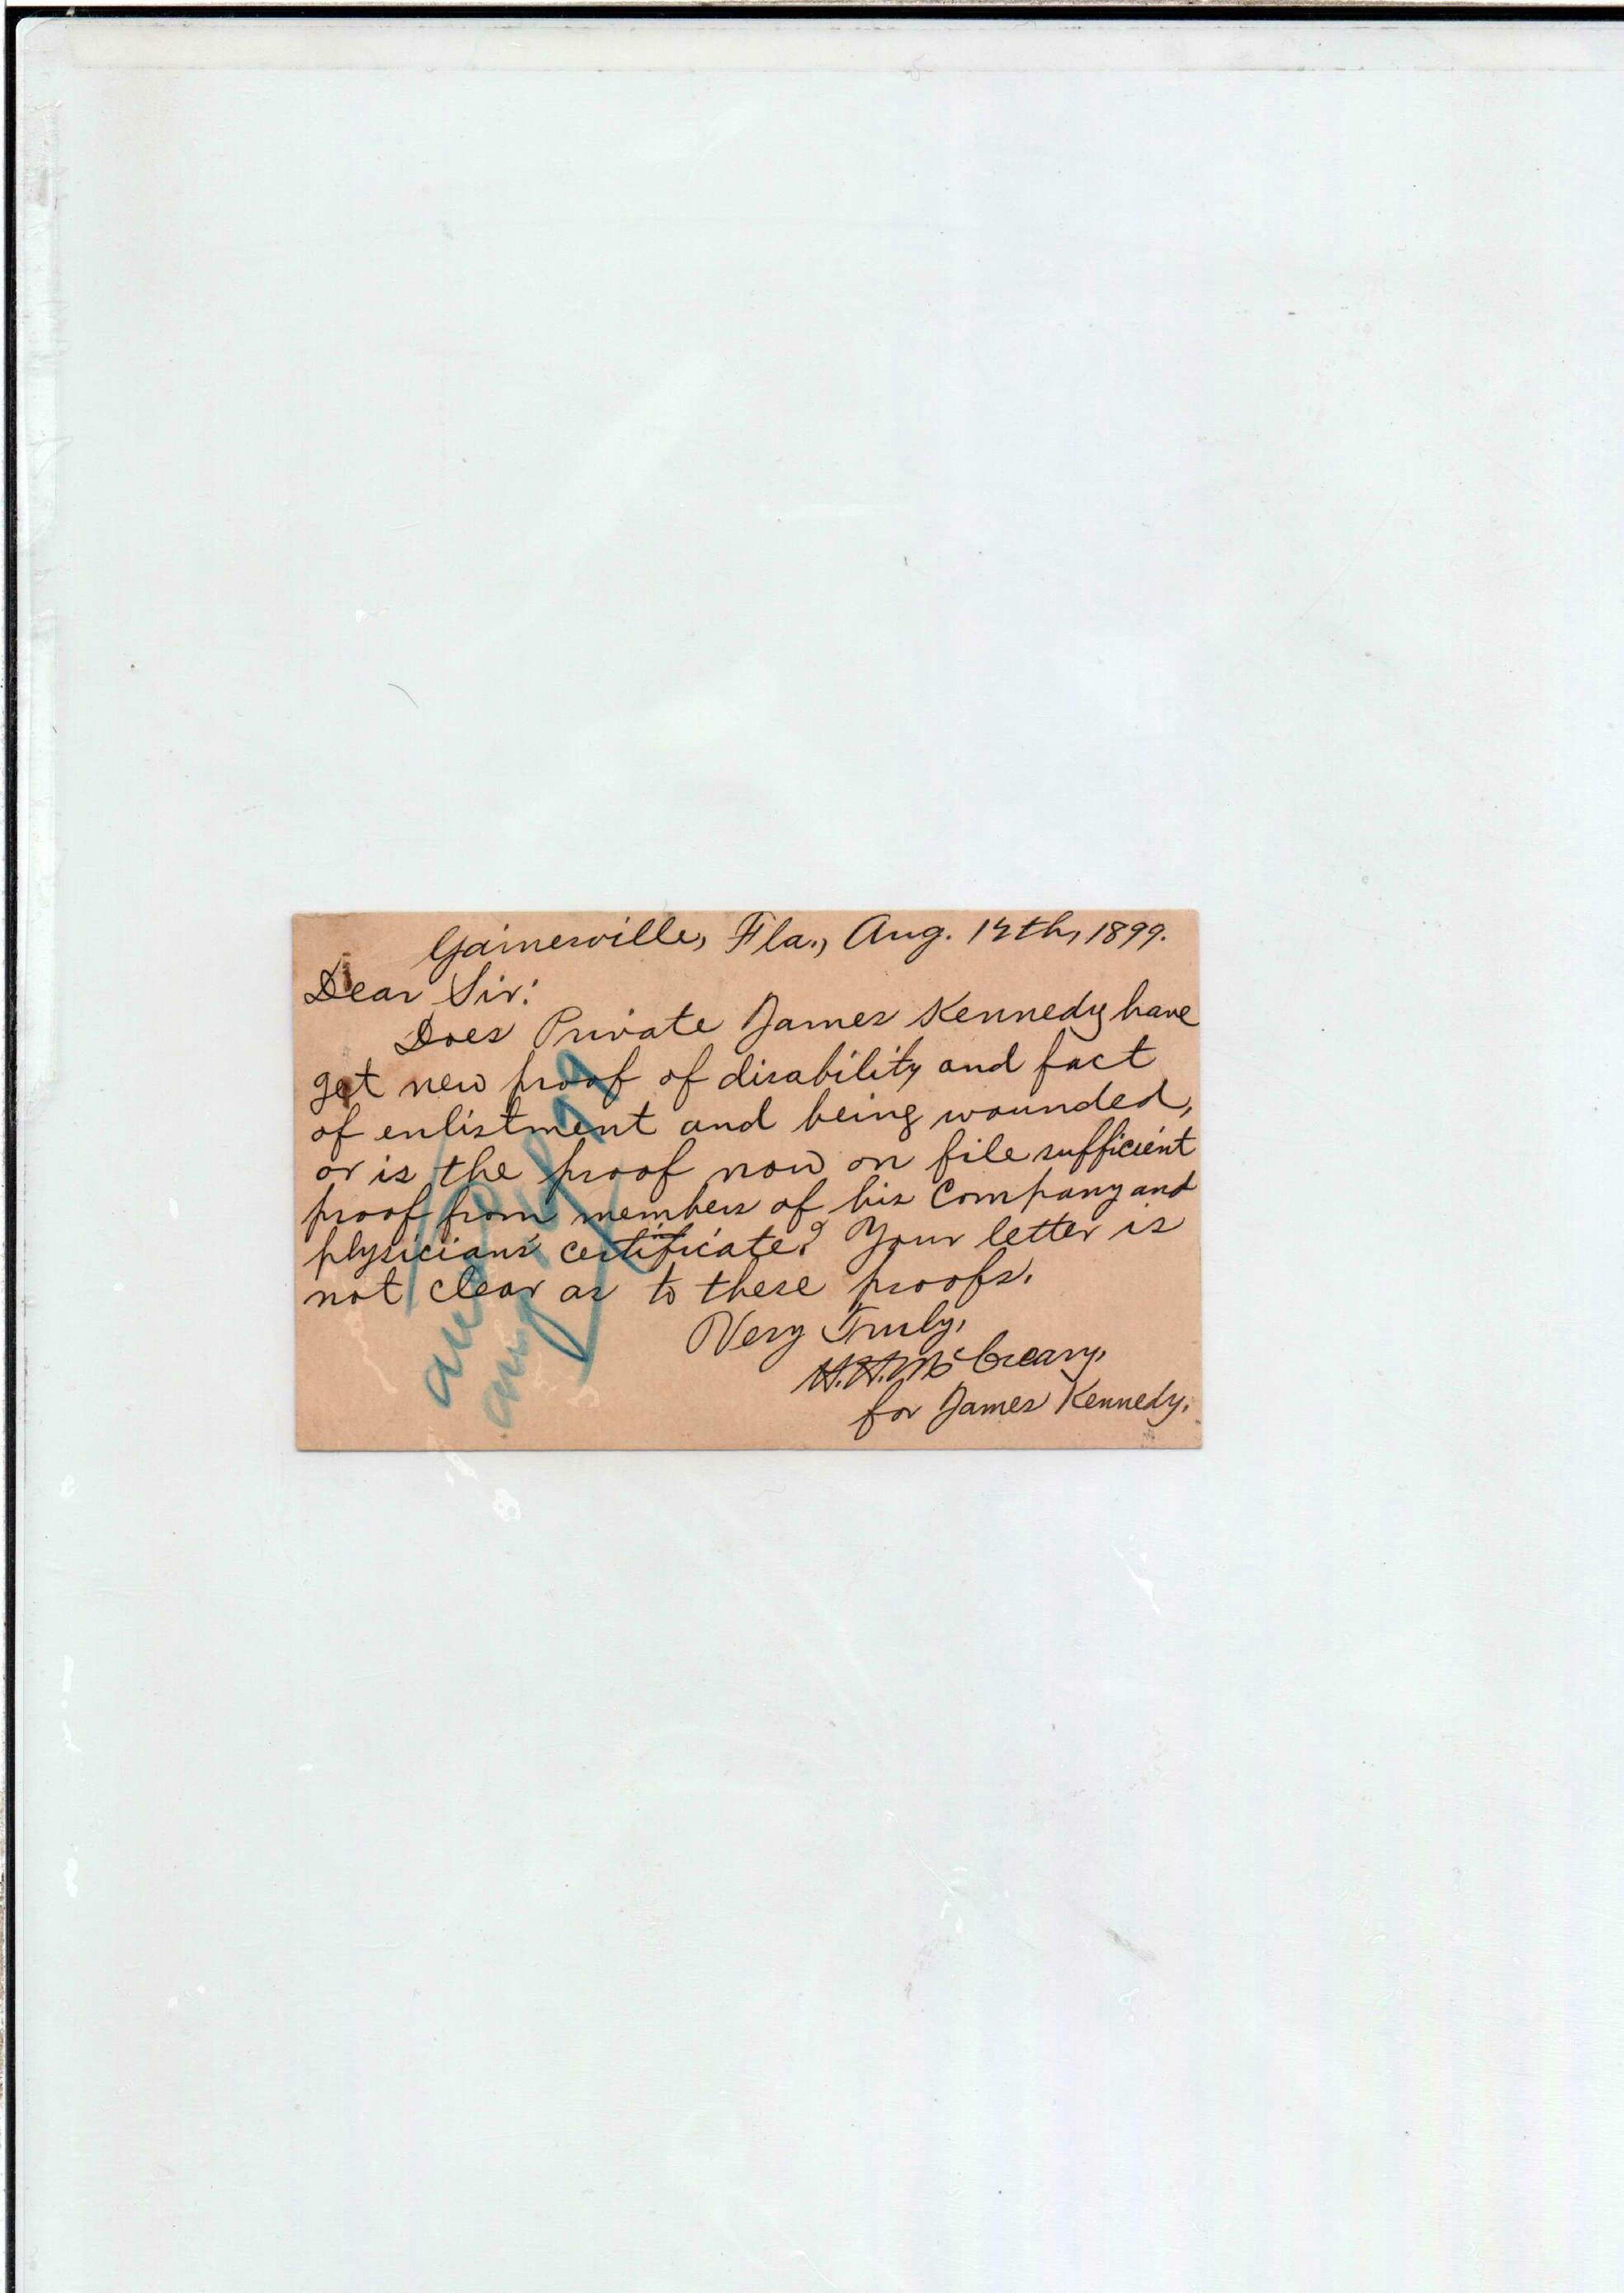 Gainesville, Fla., Aug. 12th, 1899.
Dear Sir:
Does Private James Kennedy have
get new proof of disability and fact
of enlistment and being wounded,
or is the proof now on file sufficient
proof from members of his Company and
physicians' certificate? Your letter is
not clear as to these proofs.
Very Truly,
H. H. McCreary,
for James Kennedy.